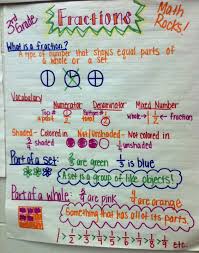 3rd Grade
Fractions
Math Rocks!
What is a fraction?
A type of number that shows equal parts of a whole or a set
Vocabulary
Numerator
Denominator
Mixed Number
Top #
Bottom #
whole → 1 1/4 ← fraction
Shaded - Colored in
Not/Unshaded - Not colored in
3/4 shaded
1/3 unshaded
Part of a set:
are green
is blue
A set is a group of like objects!
Part of a whole:
are pink
are orange
Something that has all of its parts
1 > 1/2 > 1/3 > 1/4 > 1/5 > 1/6 > 1/7 > 1/8 > 1/9 etc.